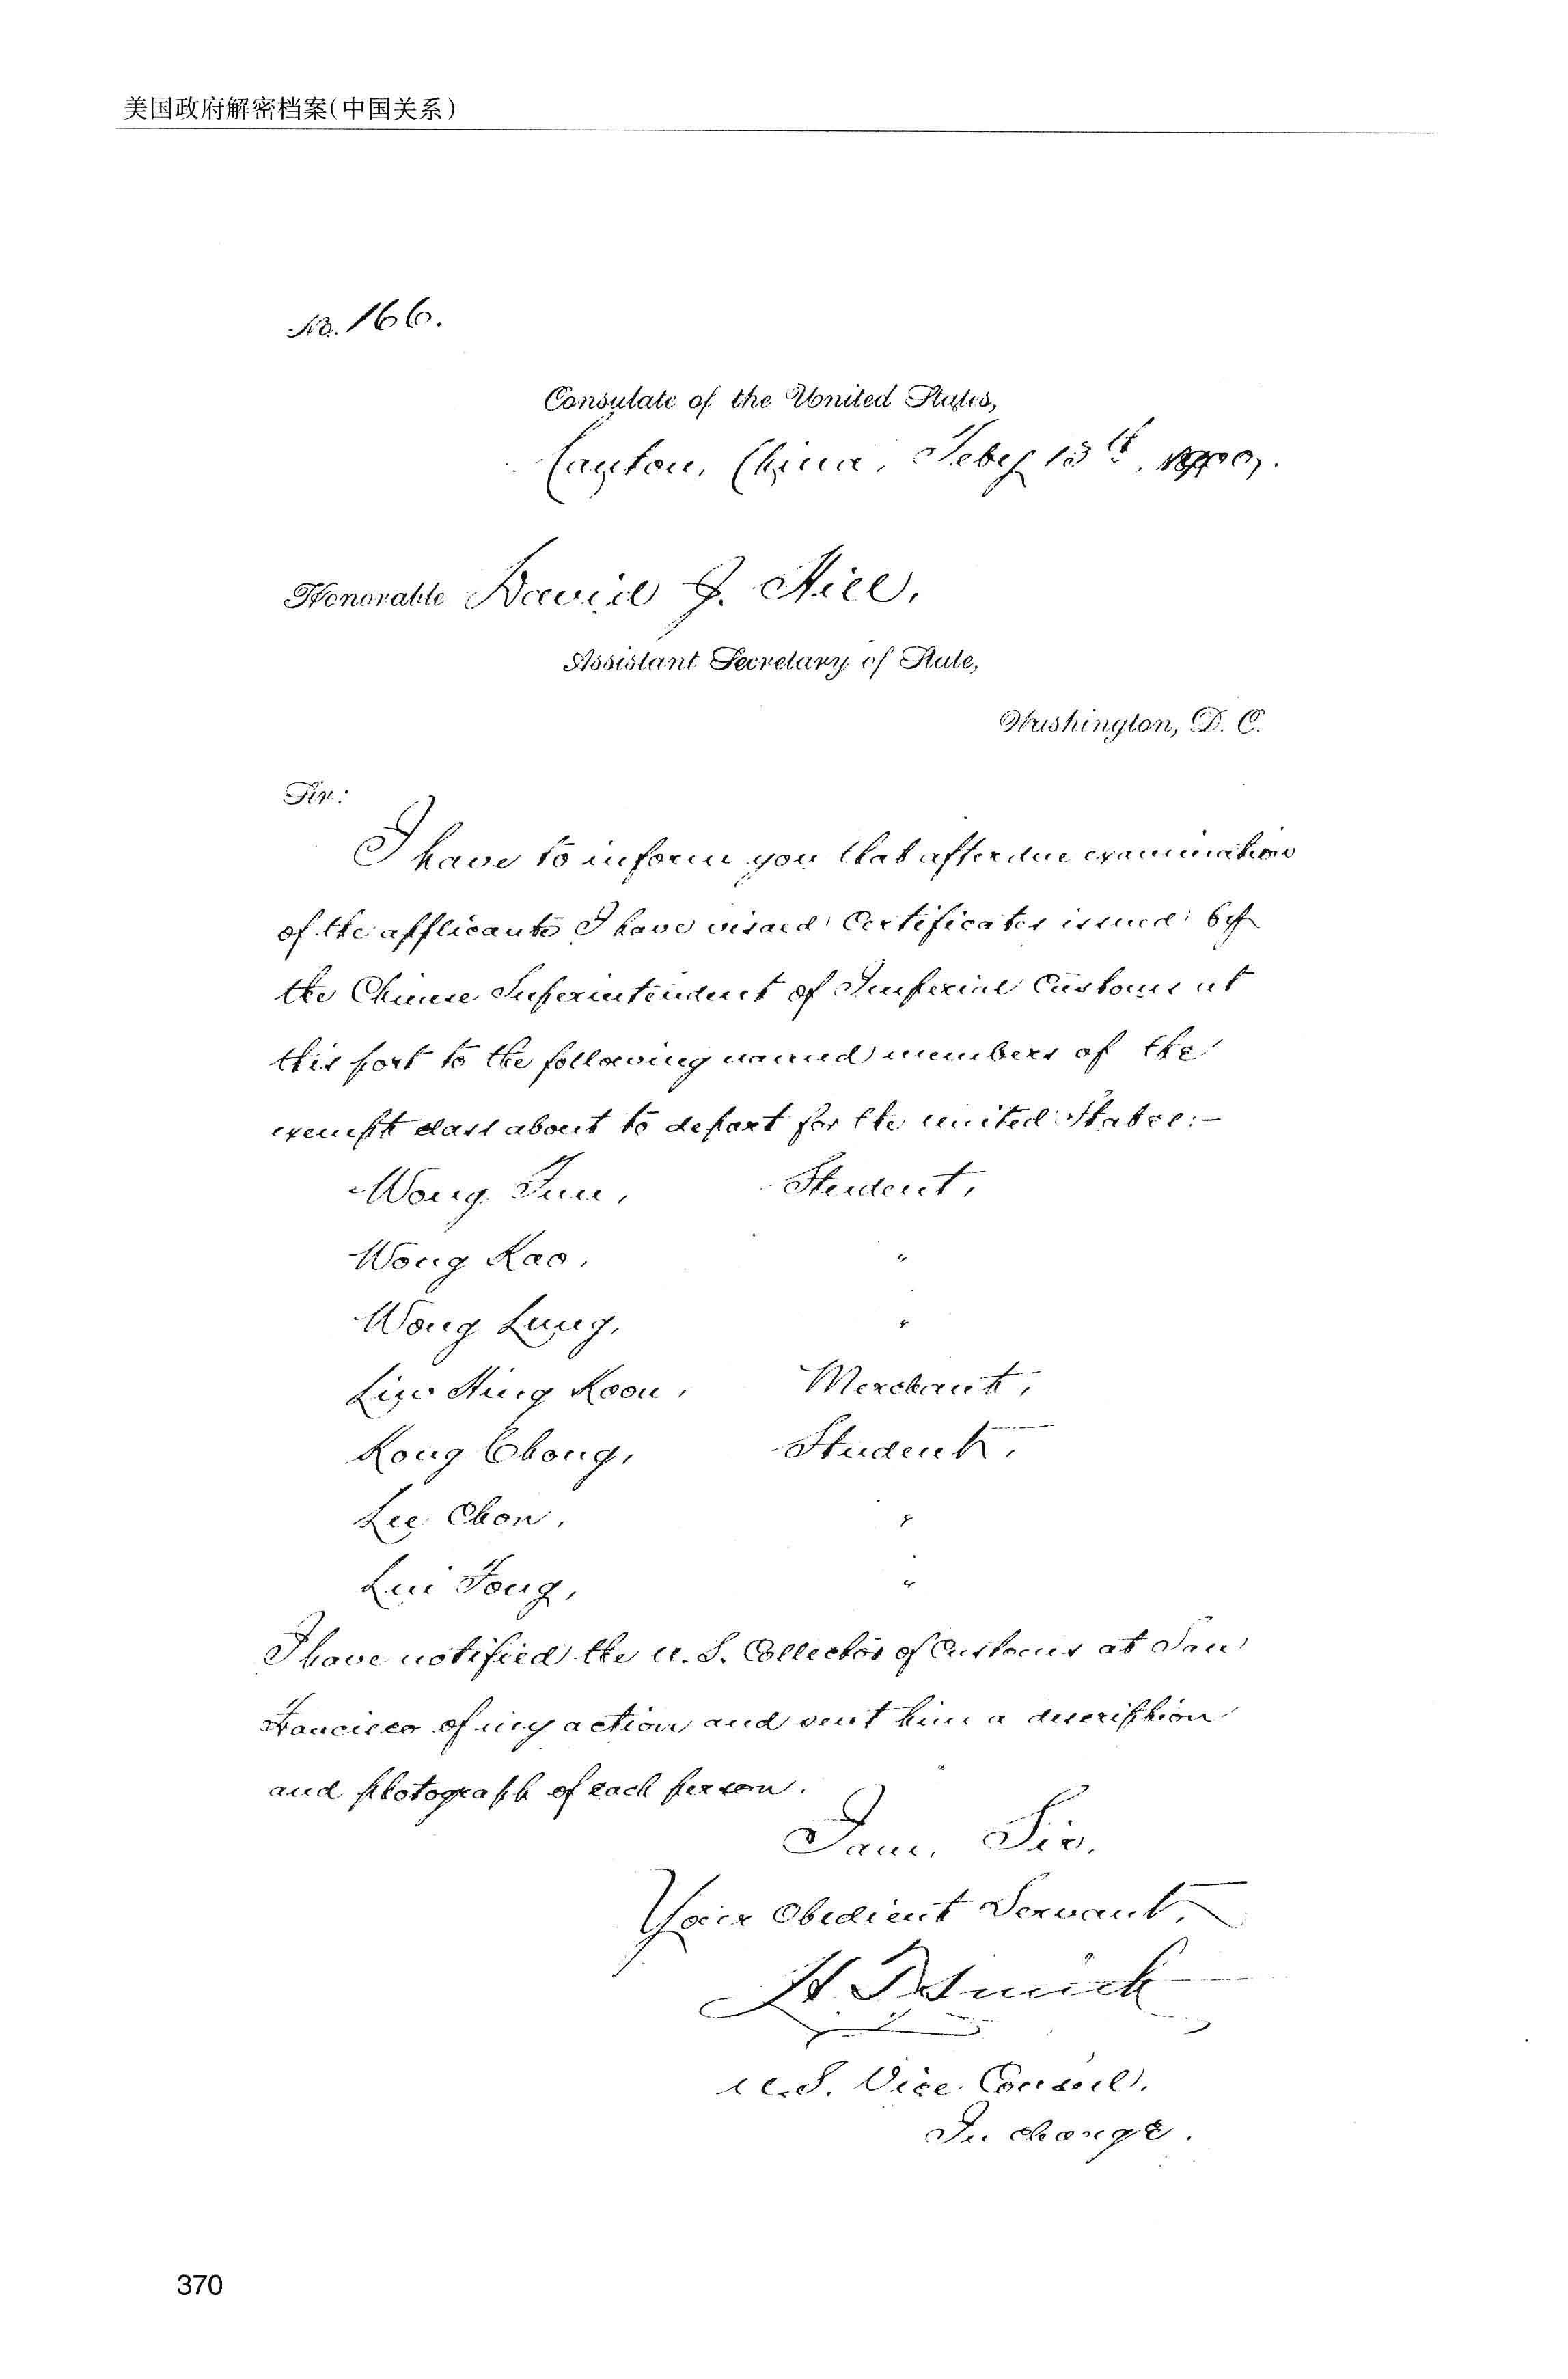 美国政府解密档案(中国关系)
No. 166.
Consulate of the United States,
Canton, China, Feby 13th, 1900.
Honorable David J. Hill,
Assistant Secretary of State,
Washington, D. C.
Sir:
I have to inform you that after due examination
of the applicants I have visaed Certificates issued by
the Chinese Superintendent of Imperial Customs at
this port to the following named members of the
exempt class about to depart for the United States:-
Wong Fun, Student,
Wong Kao, "
Wong Lung, "
Liw Hing Koon, Merchant,
Kong Chong, Student,
Lee Chon, "
Lui Fong, "
I have notified the U. S. Collector of Customs at San
Francisco of my action and sent him a description
and photograph of each person.
I am, Sir,
Your Obedient Servant,
U.S. Vice Consul,
In charge.
370